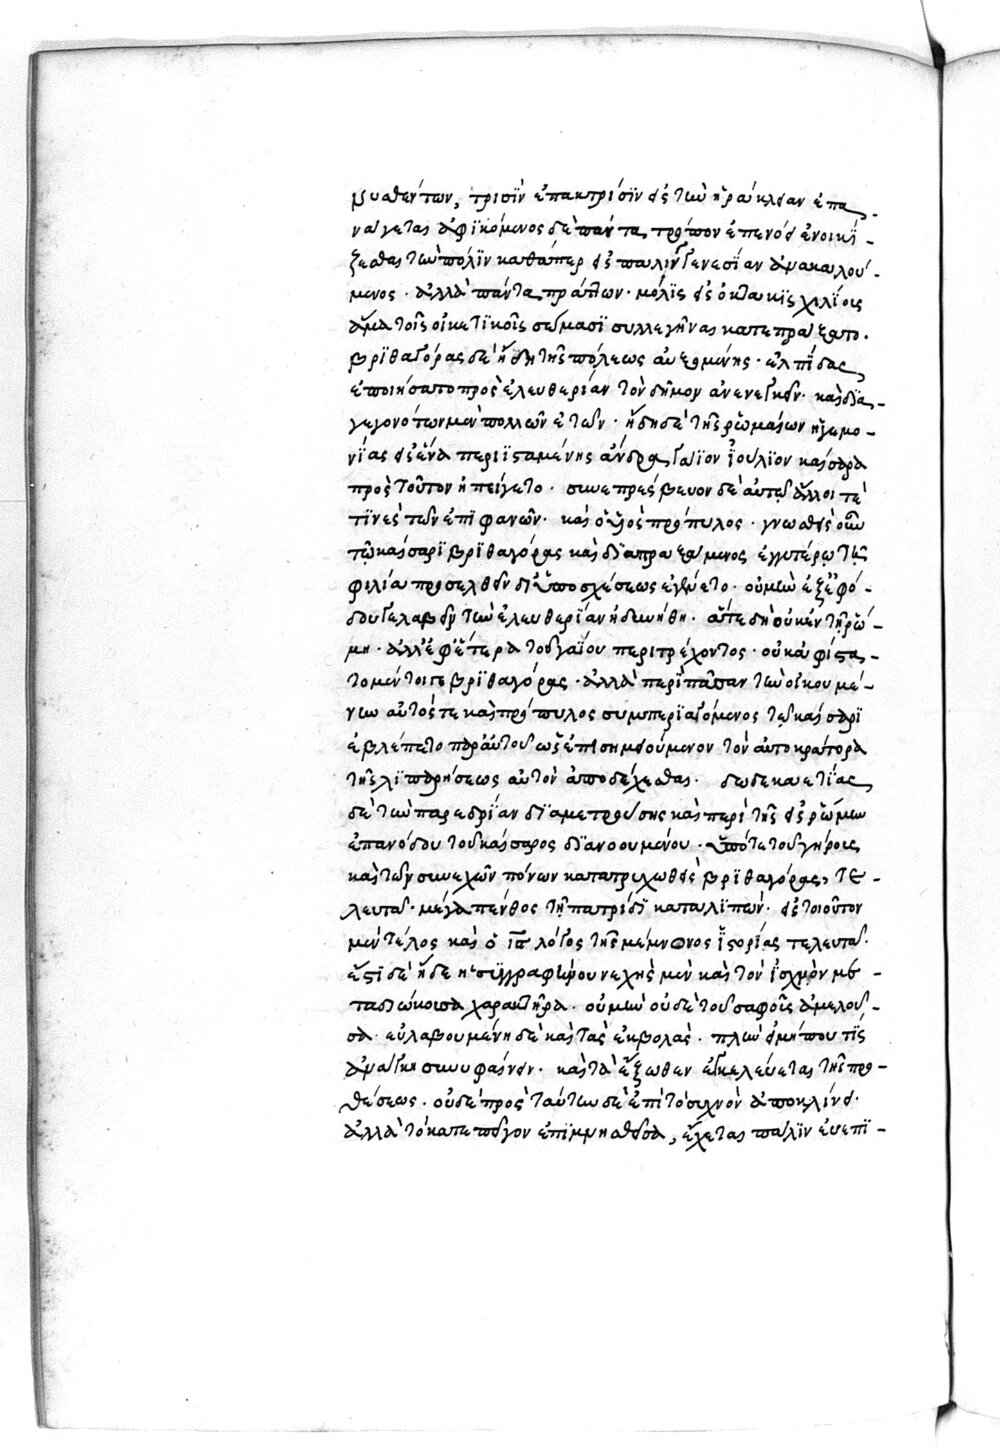 βυασθέντων, τρισὶν ἐπακτρίσιν εἰς τὴν ἡράκλειαν ἐπα-
νάγεται ἀφικόμενος δὲ πάντα τρόπον ἐπενόει ἐνοικί-
ζεσθαι τὴν πόλιν καθάπερ εἰς παλιγγενεσίαν ἀνακαλού-
μενος. ἀλλὰ πάντα πράττων. μόλις εἰς ὀκτακισχιλίους
ἅμα τοῖς οἰκετικοῖς σώμασι συλλεγῆναι κατεπράξατο.
βριθαγόρας δὲ ἤδη τῆς πόλεως αὐξομένης. ἐλπίδας
ἐποιήσατο πρὸς ἐλευθερίαν τὸν δῆμον ἀνενεγκεῖν. καὶ δια-
γεγονότων μὲν πολλῶν ἐτῶν. ἤδη δὲ τῆς ῥωμαίων ἡγεμο-
νίας εἰς ἕνα περιισταμένης ἄνδρα γάϊον ἰούλιον καίσαρα
πρὸς τοῦτον ἠπείγετο. συνεπρέσβευον δὲ αὐτῶ ἄλλοι τέ
τινες τῶν ἐπιφανῶν. καὶ ὁ υἱὸς πρόπυλος. γνωσθεὶς οὖν
τῶ καίσαρι βριθαγόρας καὶ διαπραξάμενος ἐγγυτέρω τῆς
φιλία προσελθεῖν δι᾽ ὑποσχέσεως ἐγένετο. οὐ μὴν ἐξ ἐφό-
δου γε λαβεῖν τὴν ἐλευθερίαν ἠδυνήθη. ἅτε δὴ οὐκ ἐν τῇ ῥώ-
μη. ἀλλ᾽ ἐφ᾽ ἕτερα τοῦ γαΐου περιτρέχοντος. οὐκ ἀφίστα-
το μέντοιγε βριθαγόρας. ἀλλὰ περὶ πᾶσαν τὴν οἰκουμέ-
νην αὐτός τε καὶ πρόπυλος συμπεριαγόμενος τῶ καίσαρι
ἐβλέπετο παρ᾽ αὐτοῦ ὡς ἐπισημειούμενον τὸν αὐτοκράτορα
τῆς λιπαρήσεως αὐτὸν ἀποδέχεσθαι. δωδεκαετίας
δὲ τὴν παρεδρίαν διαμετρούσης καὶ περὶ τῆς εἰς ῥώμην
ἐπανόδου τοῦ καίσαρος διανοουμένου. ὑπό τε τοῦ γήρους
καὶ τῶν συνεχῶν πόνων κατατρυχωθεὶς βριθαγόρας, τε-
λευτᾶ. μέγα πένθος τῇ πατρίδι καταλιπών. εἰς τοιοῦτον
μὲν τέλος καὶ ὁ ι̅ϛ̅ λόγος τῆς μέμνονος ἱστορίας τελευτᾶ.
ἔστι δὲ ἥδε ἡ συγγραφὴ νουνεχὴς μὲν καὶ τὸν ἰσχνὸν με-
ταδιώκουσα χαρακτῆρα. οὐ μὴν οὐδὲ τοῦ σαφοῦς ἀμελοῦ-
σα. εὐλαβουμένη δὲ καὶ τὰς ἐκβολάς. πλὴν εἰ μή που τις
ἀνάγκη συνυφαίνειν. καὶ τὰ ἔξωθεν ἐγκελεύεται τῆς προ-
θέσεως. οὐδὲ πρὸς ταύτην δὲ ἐπὶ τὸ συχνὸν ἀποκλίνει.
ἀλλὰ τὸ κατεπεῖγον ἐπιμνησθεῖσα, ἔχεται πάλιν εὐεπι-